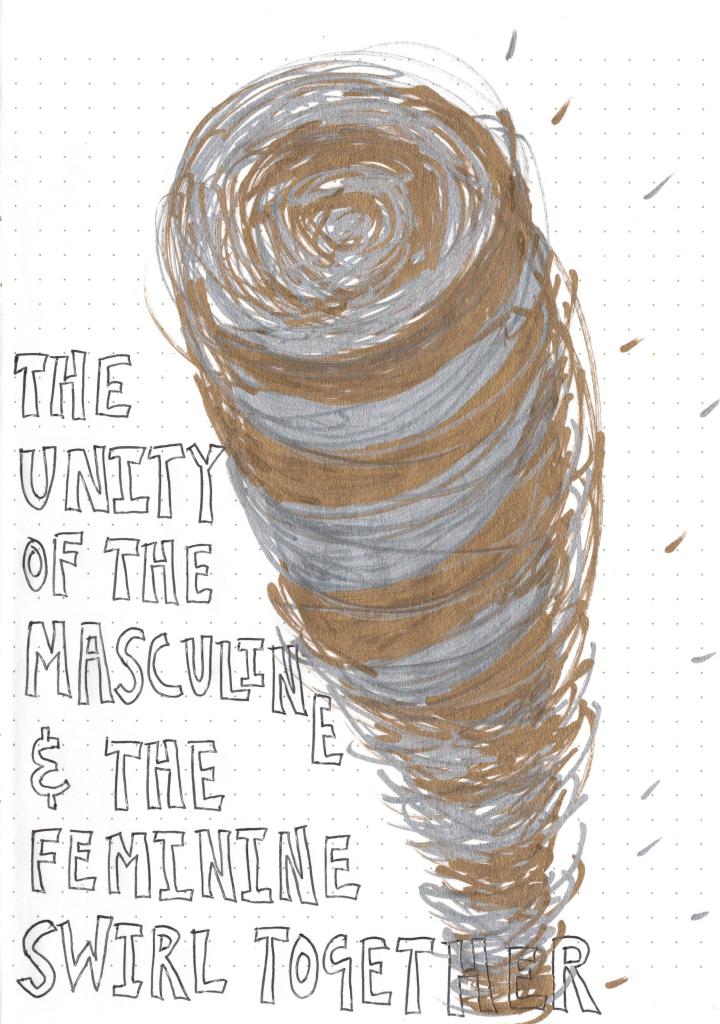 THE
UNITY
OF THE
MASCULINE
& THE
FEMININE
SWIRL TOGETHER